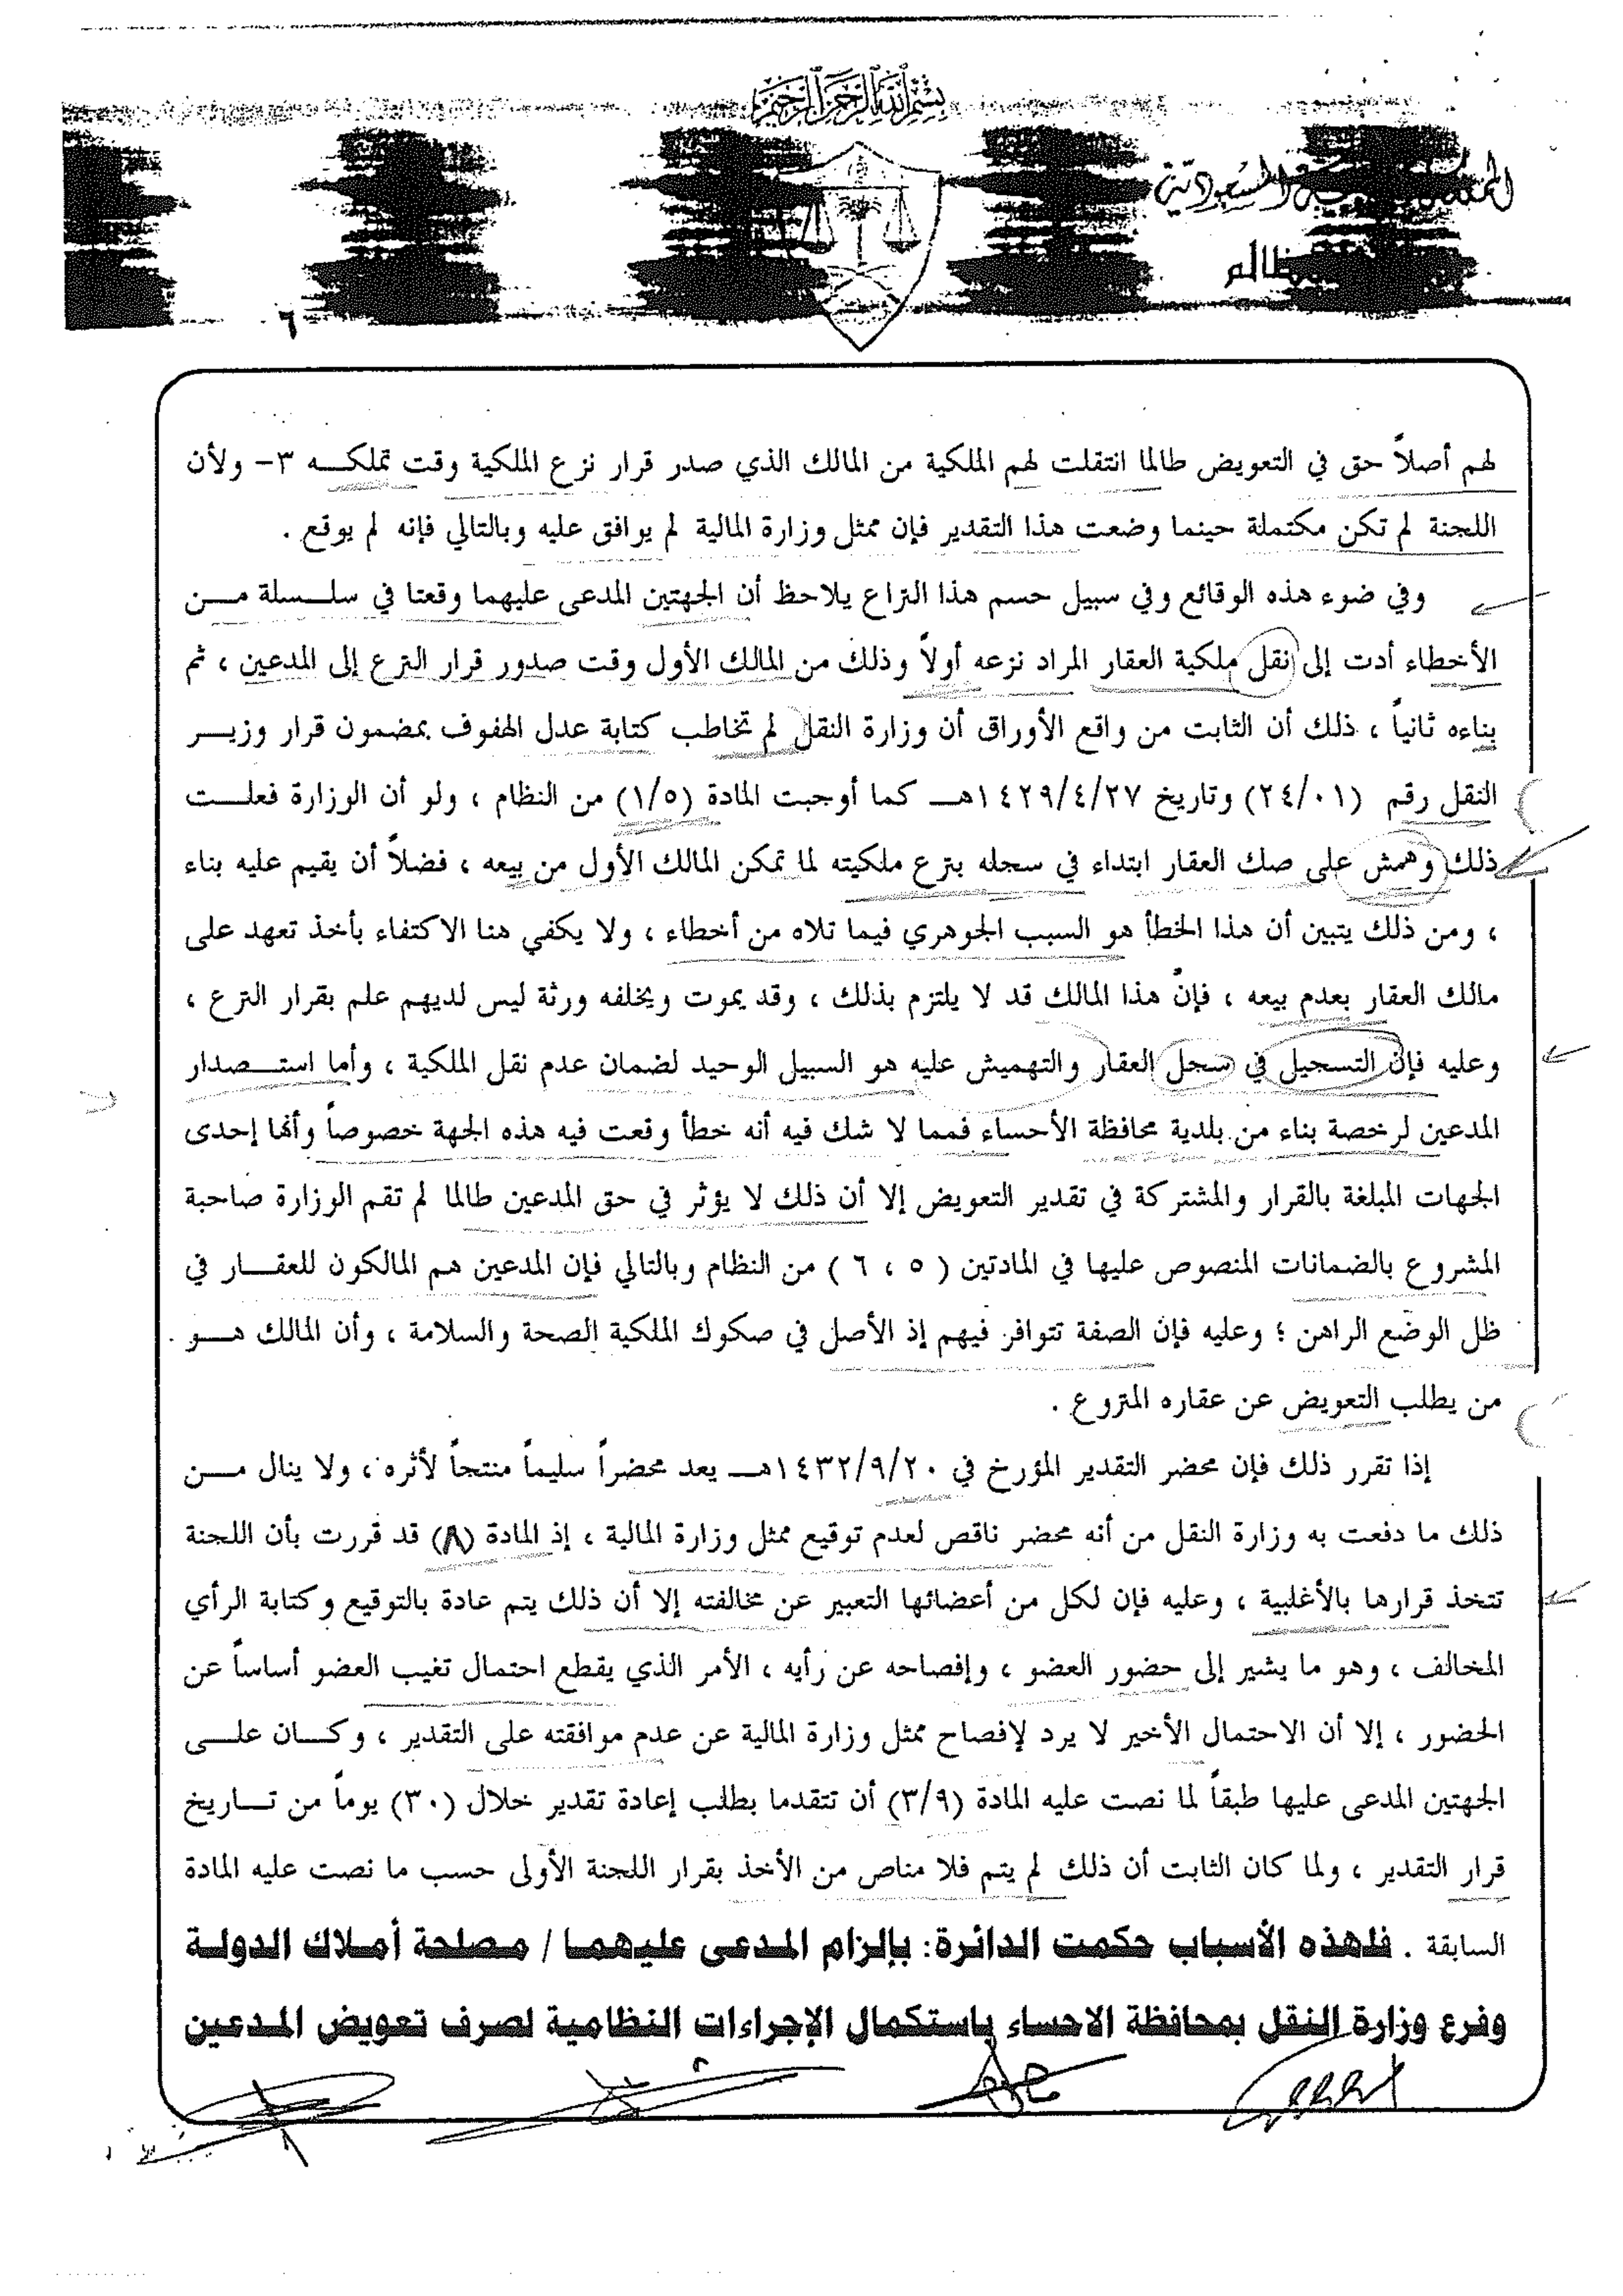 بسم الله الرحمن الرحيم
السعودية
٦
لهم أصلاً حق في التعويض طالما انتقلت لهم الملكية من المالك الذي صدر قرار نزع الملكية وقت تملكـــه ٣- ولأن
اللجنة لم تكن مكتملة حينما وضعت هذا التقدير فإن ممثل وزارة المالية لم يوافق عليه وبالتالي فإنه لم يوقع .
وفي ضوء هذه الوقائع وفي سبيل حسم هذا النزاع يلاحظ أن الجهتين المدعى عليهما وقعتا في سلـــسلة مـــن
الأخطاء أدت إلى نقل ملكية العقار المراد نزعه أولاً وذلك من المالك الأول وقت صدور قرار النزع إلى المدعين ، ثم
بناءه ثانياً ، ذلك أن الثابت من واقع الأوراق أن وزارة النقل لم تخاطب كتابة عدل الهفوف بمضمون قرار وزيـــر
النقل رقم (٢٤/٠١) وتاريخ ١٤٢٩/٤/٢٧هـــ كما أوجبت المادة (١/٥) من النظام ، ولو أن الوزارة فعلـــت
ذلك وهمش على صك العقار ابتداء في سجله بنزع ملكيته لما تمكن المالك الأول من بيعه ، فضلاً أن يقيم عليه بناء
، ومن ذلك يتبين أن هذا الخطأ هو السبب الجوهري فيما تلاه من أخطاء ، ولا يكفي هنا الاكتفاء بأخذ تعهد على
مالك العقار بعدم بيعه ، فإنّ هذا المالك قد لا يلتزم بذلك ، وقد يموت ويخلفه ورثة ليس لديهم علم بقرار النزع ،
وعليه فإن التسجيل في سجل العقار والتهميش عليه هو السبيل الوحيد لضمان عدم نقل الملكية ، وأما استـــصدار
المدعين لرخصة بناء من بلدية محافظة الأحساء فمما لا شك فيه أنه خطأ وقعت فيه هذه الجهة خصوصاً وأنها إحدى
الجهات المبلغة بالقرار والمشتركة في تقدير التعويض إلا أن ذلك لا يؤثر في حق المدعين طالما لم تقم الوزارة صاحبة
المشروع بالضمانات المنصوص عليها في المادتين ( ٥ ، ٦ ) من النظام وبالتالي فإن المدعين هم المالكون للعقـــار في
ظل الوضع الراهن ؛ وعليه فإن الصفة تتوافر فيهم إذ الأصل في صكوك الملكية الصحة والسلامة ، وأن المالك هـــو
من يطلب التعويض عن عقاره المنزوع .
إذا تقرر ذلك فإن محضر التقدير المؤرخ في ١٤٣٢/٩/٢٠هـــ يعد محضراً سليماً منتجاً لأثره ، ولا ينال مـــن
ذلك ما دفعت به وزارة النقل من أنه محضر ناقص لعدم توقيع ممثل وزارة المالية ، إذ المادة (٨) قد قررت بأن اللجنة
تتخذ قرارها بالأغلبية ، وعليه فإن لكل من أعضائها التعبير عن مخالفته إلا أن ذلك يتم عادة بالتوقيع وكتابة الرأي
المخالف ، وهو ما يشير إلى حضور العضو ، وإفصاحه عن رأيه ، الأمر الذي يقطع احتمال تغيب العضو أساساً عن
الحضور ، إلا أن الاحتمال الأخير لا يرد لإفصاح ممثل وزارة المالية عن عدم موافقته على التقدير ، وكـــان علـــى
الجهتين المدعى عليها طبقاً لما نصت عليه المادة (٣/٩) أن تتقدما بطلب إعادة تقدير خلال (٣٠) يوماً من تـــاريخ
قرار التقدير ، ولما كان الثابت أن ذلك لم يتم فلا مناص من الأخذ بقرار اللجنة الأولى حسب ما نصت عليه المادة
السابقة . فلهذه الأسباب حكمت الدائرة: بإلزام المدعى عليهما / مصلحة أملاك الدولة
وفرع وزارة النقل بمحافظة الاحساء باستكمال الإجراءات النظامية لصرف تعويض المدعين